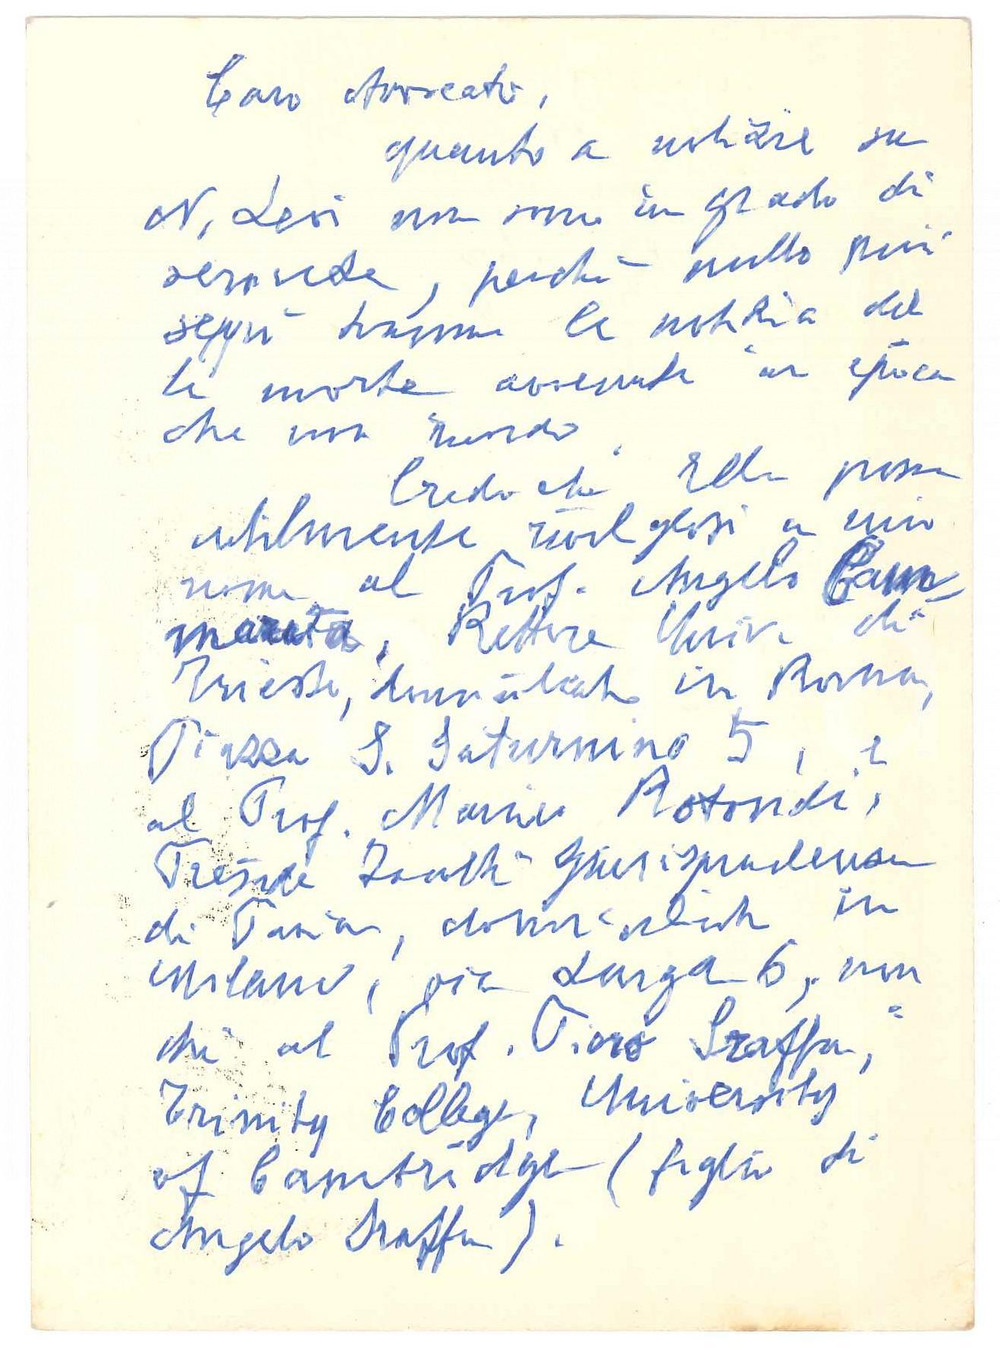 Caro Avvocato,
quanto a notizie su
N. Levi non sono in grado di
servirla, perché nulla più
seppi tranne la notizia del
la morte avvenuta in epoca
che non ricordo.
Credo che Ella possa
utilmente rivolgersi a mio
nome al Prof. Angelo Cam
marata, Rettore Univ. di
Trieste, domiciliato in Roma,
Piazza S. Saturnino 5, e
al Prof. Mario Rotondi,
Preside Facoltà Giurisprudenza
di Pavia, domiciliato in
Milano, via Larga 6, non
ché al Prof. Piero Sraffa,
Trinity College, University
of Cambridge (figlio di
Angelo Sraffa).